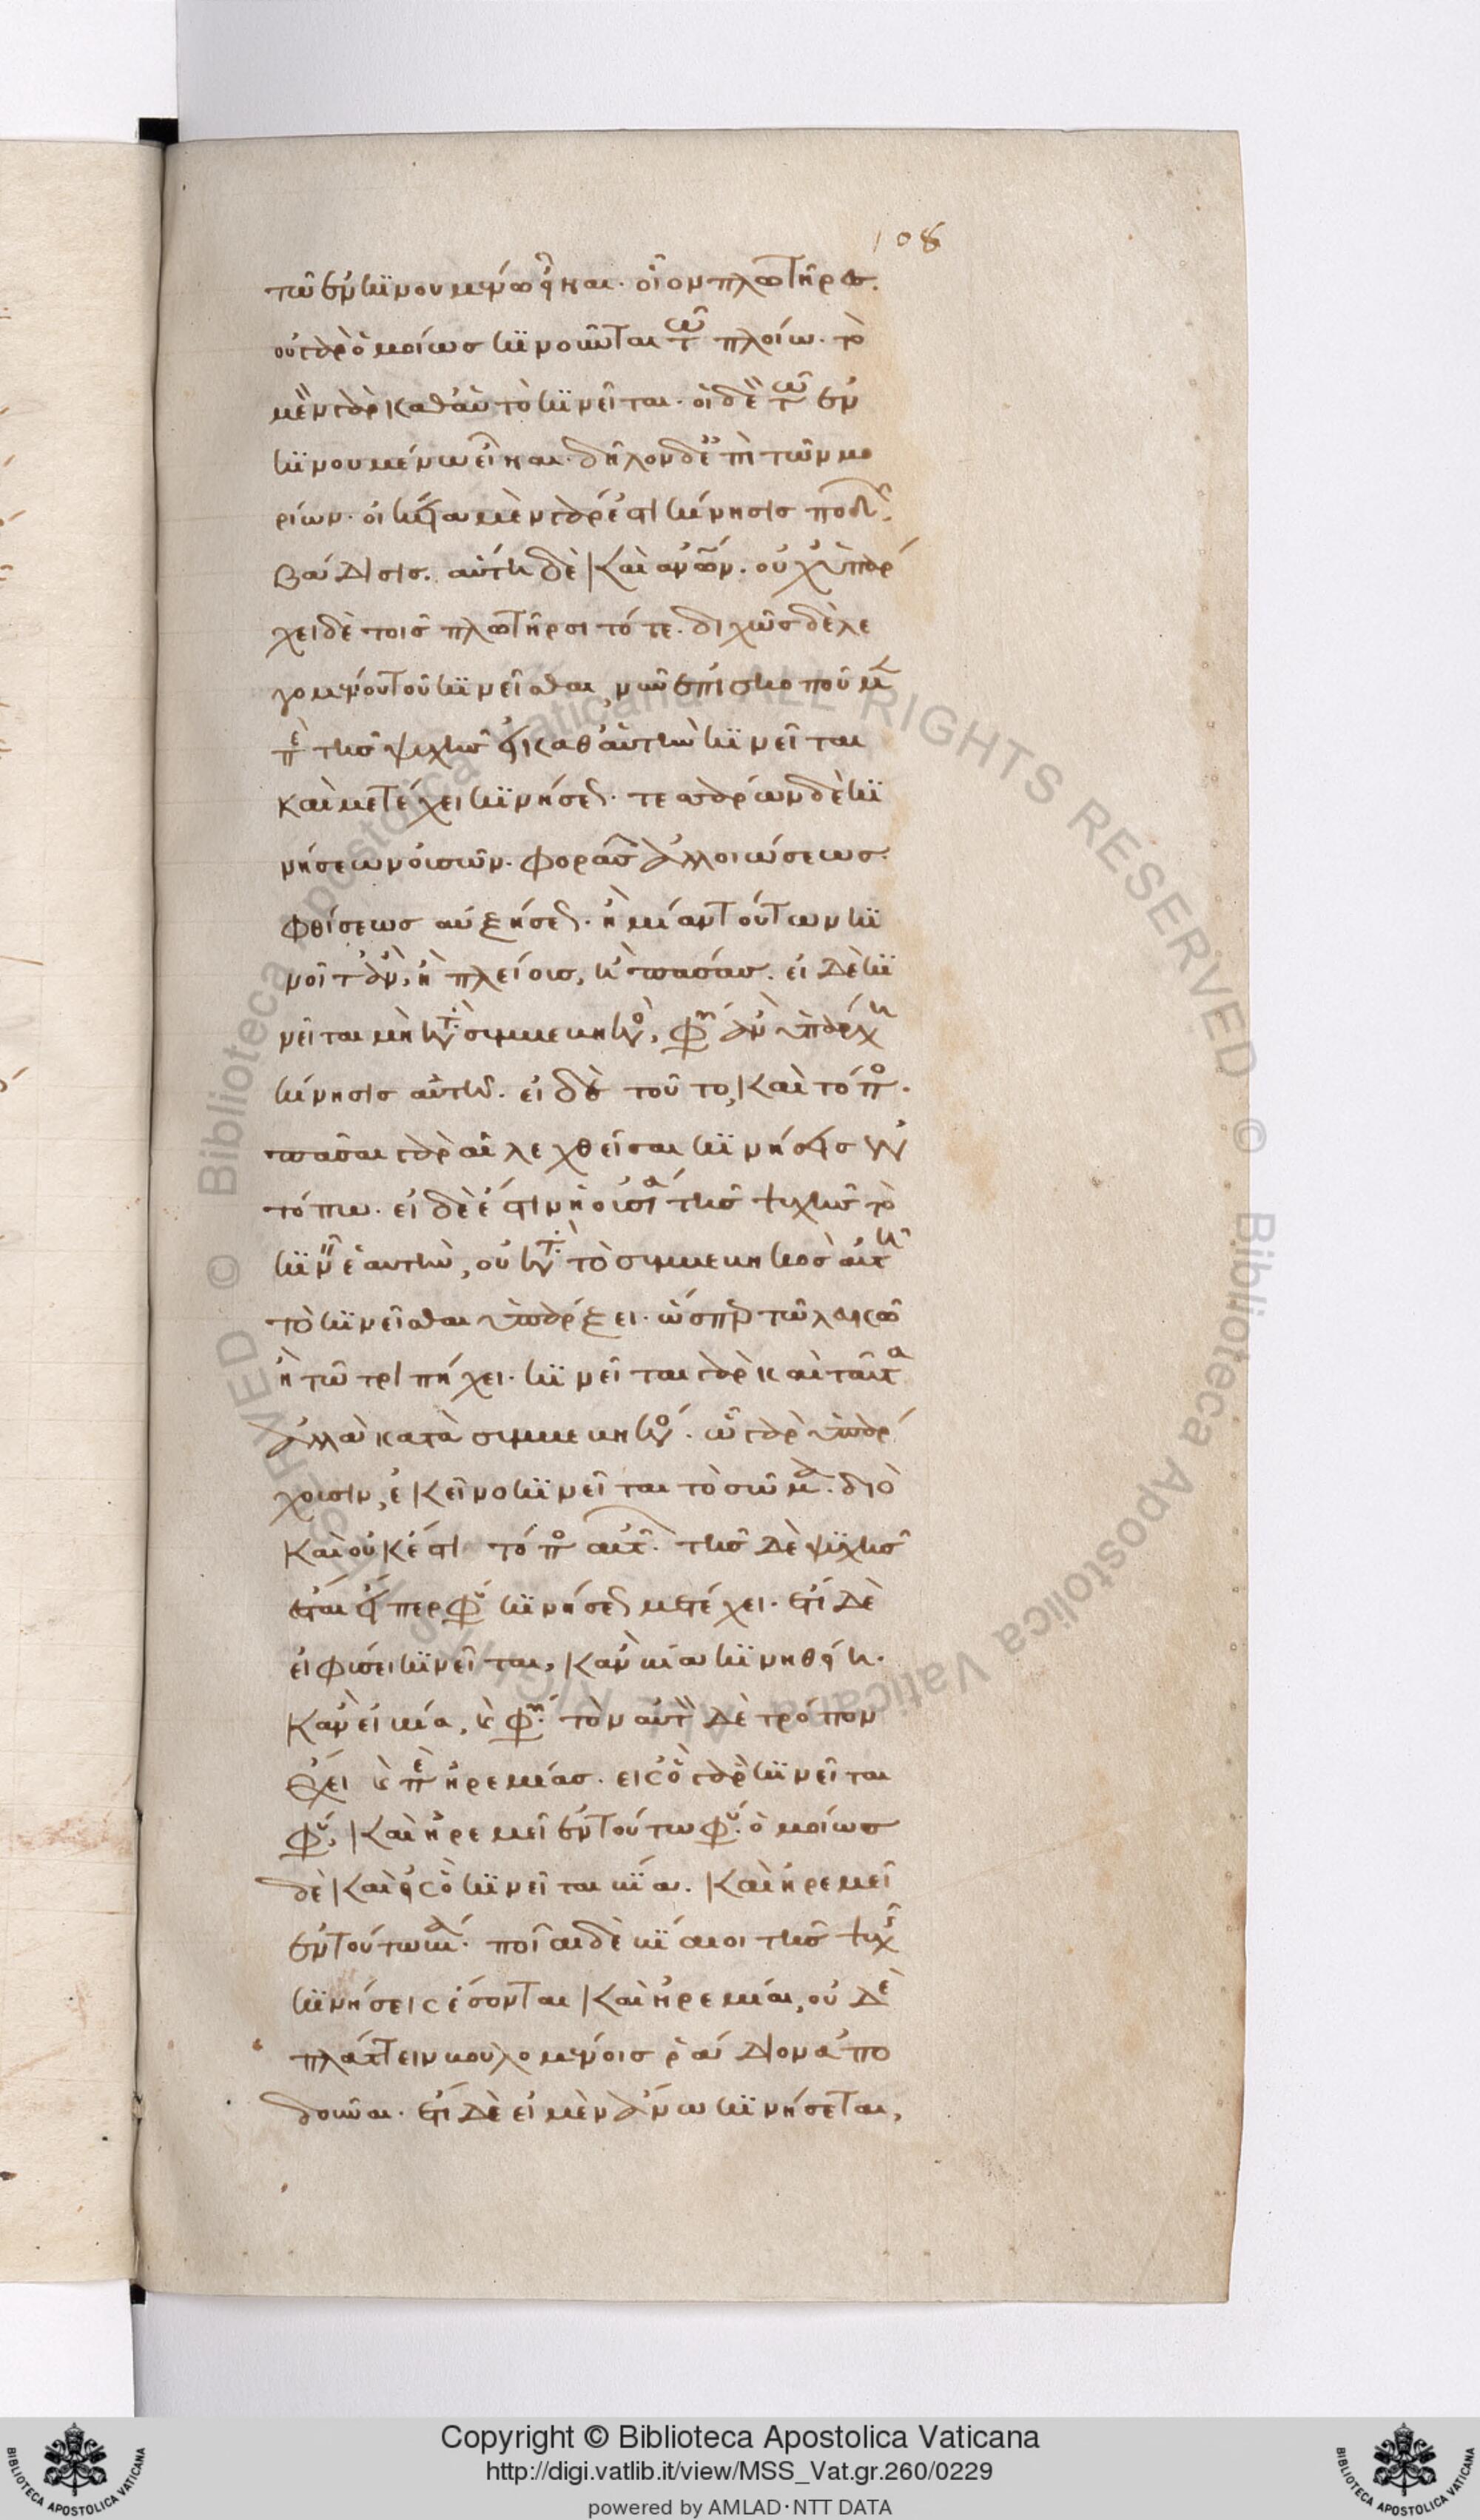 108
τῷ ἐν κινουμένῳ εἶναι. οἷον πλωτῆρες.
οὐ γὰρ ὁμοίως κινοῦνται τῷ πλοίῳ. τὸ
μὲν γὰρ καθ' αὑτὸ κινεῖται. οἱ δὲ τῷ ἐν
κινουμένῳ εἶναι. δῆλον δ' ἐπὶ τῶν μο
ρίων. οἰκεία μὲν γάρ ἐστι κίνησις ποδῶν
βάδισις. αὕτη δὲ καὶ ἀνων. οὐχ ὑπάρ
χει δὲ τοῖς πλωτῆρσι τότε. διχῶς δὲ λε
γομένου τοῦ κινεῖσθαι, νῦν ἐπισκοποῦμεν
περὶ τῆς ψυχῆς εἰ καθ' αὑτὴν κινεῖται
καὶ μετέχει κινήσεως. τεσσάρων δὲ κι
νήσεων οὐσῶν. φορᾶς ἀλλοιώσεως.
φθίσεως αὐξήσεως. ἢ μίαν τούτων κι
νοῖτ' ἄν, ἢ πλείους, ἢ πάσας. εἰ δὲ κι
νεῖται μὴ κατὰ συμβεβηκός, φύσει ἂν ὑπάρχοι
κίνησις αὐτῇ. εἰ δὲ τοῦτο, καὶ τόπος.
πᾶσαι γὰρ αἱ λεχθεῖσαι κινήσεις ἐν
τόπῳ. εἰ δὲ ἐστὶν ἡ οὐσία τῆς ψυχῆς τὸ
κινεῖν ἑαυτήν, οὐ κατὰ τὸ συμβεβηκὸς αὐτῇ
τὸ κινεῖσθαι ὑπάρξει. ὥσπερ τῷ λευκῷ
ἢ τῷ τριπήχει. κινεῖται γὰρ καὶ ταῦτα
ἀλλὰ κατὰ συμβεβηκός. ᾧ γὰρ ὑπάρ
χουσιν, ἐκεῖνο κινεῖται τὸ σῶμα. διὸ
καὶ οὐκ ἔστι τόπος αὐτῶν. τῆς δὲ ψυχῆς
ἔσται εἴπερ φύσει κινήσεως μετέχει. ἔτι δὲ
εἰ φύσει κινεῖται, κἂν βίᾳ κινηθείη.
κἂν εἰ βίᾳ, καὶ φύσει. τὸν αὐτὸν δὲ τρόπον
ἔχει καὶ περὶ ἠρεμίας. εἰς ὃ γὰρ κινεῖται
φύσει, καὶ ἠρεμεῖ ἐν τούτῳ φύσει. ὁμοίως
δὲ καὶ εἰς ὃ κινεῖται βίᾳ. καὶ ἠρεμεῖ
ἐν τούτῳ βίᾳ. ποῖαι δὲ βίαιοι τῆς ψυχῆς
κινήσεις ἔσονται καὶ ἠρεμίαι, οὐδὲ
πλάττειν βουλομένοις ῥᾴδιον ἀπο
δοῦναι. ἔτι δὲ εἰ μὲν ἄνω κινήσεται,
Copyright © Biblioteca Apostolica Vaticana
http://digi.vatlib.it/view/MSS_Vat.gr.260/0229
powered by AMLAD·NTT DATA